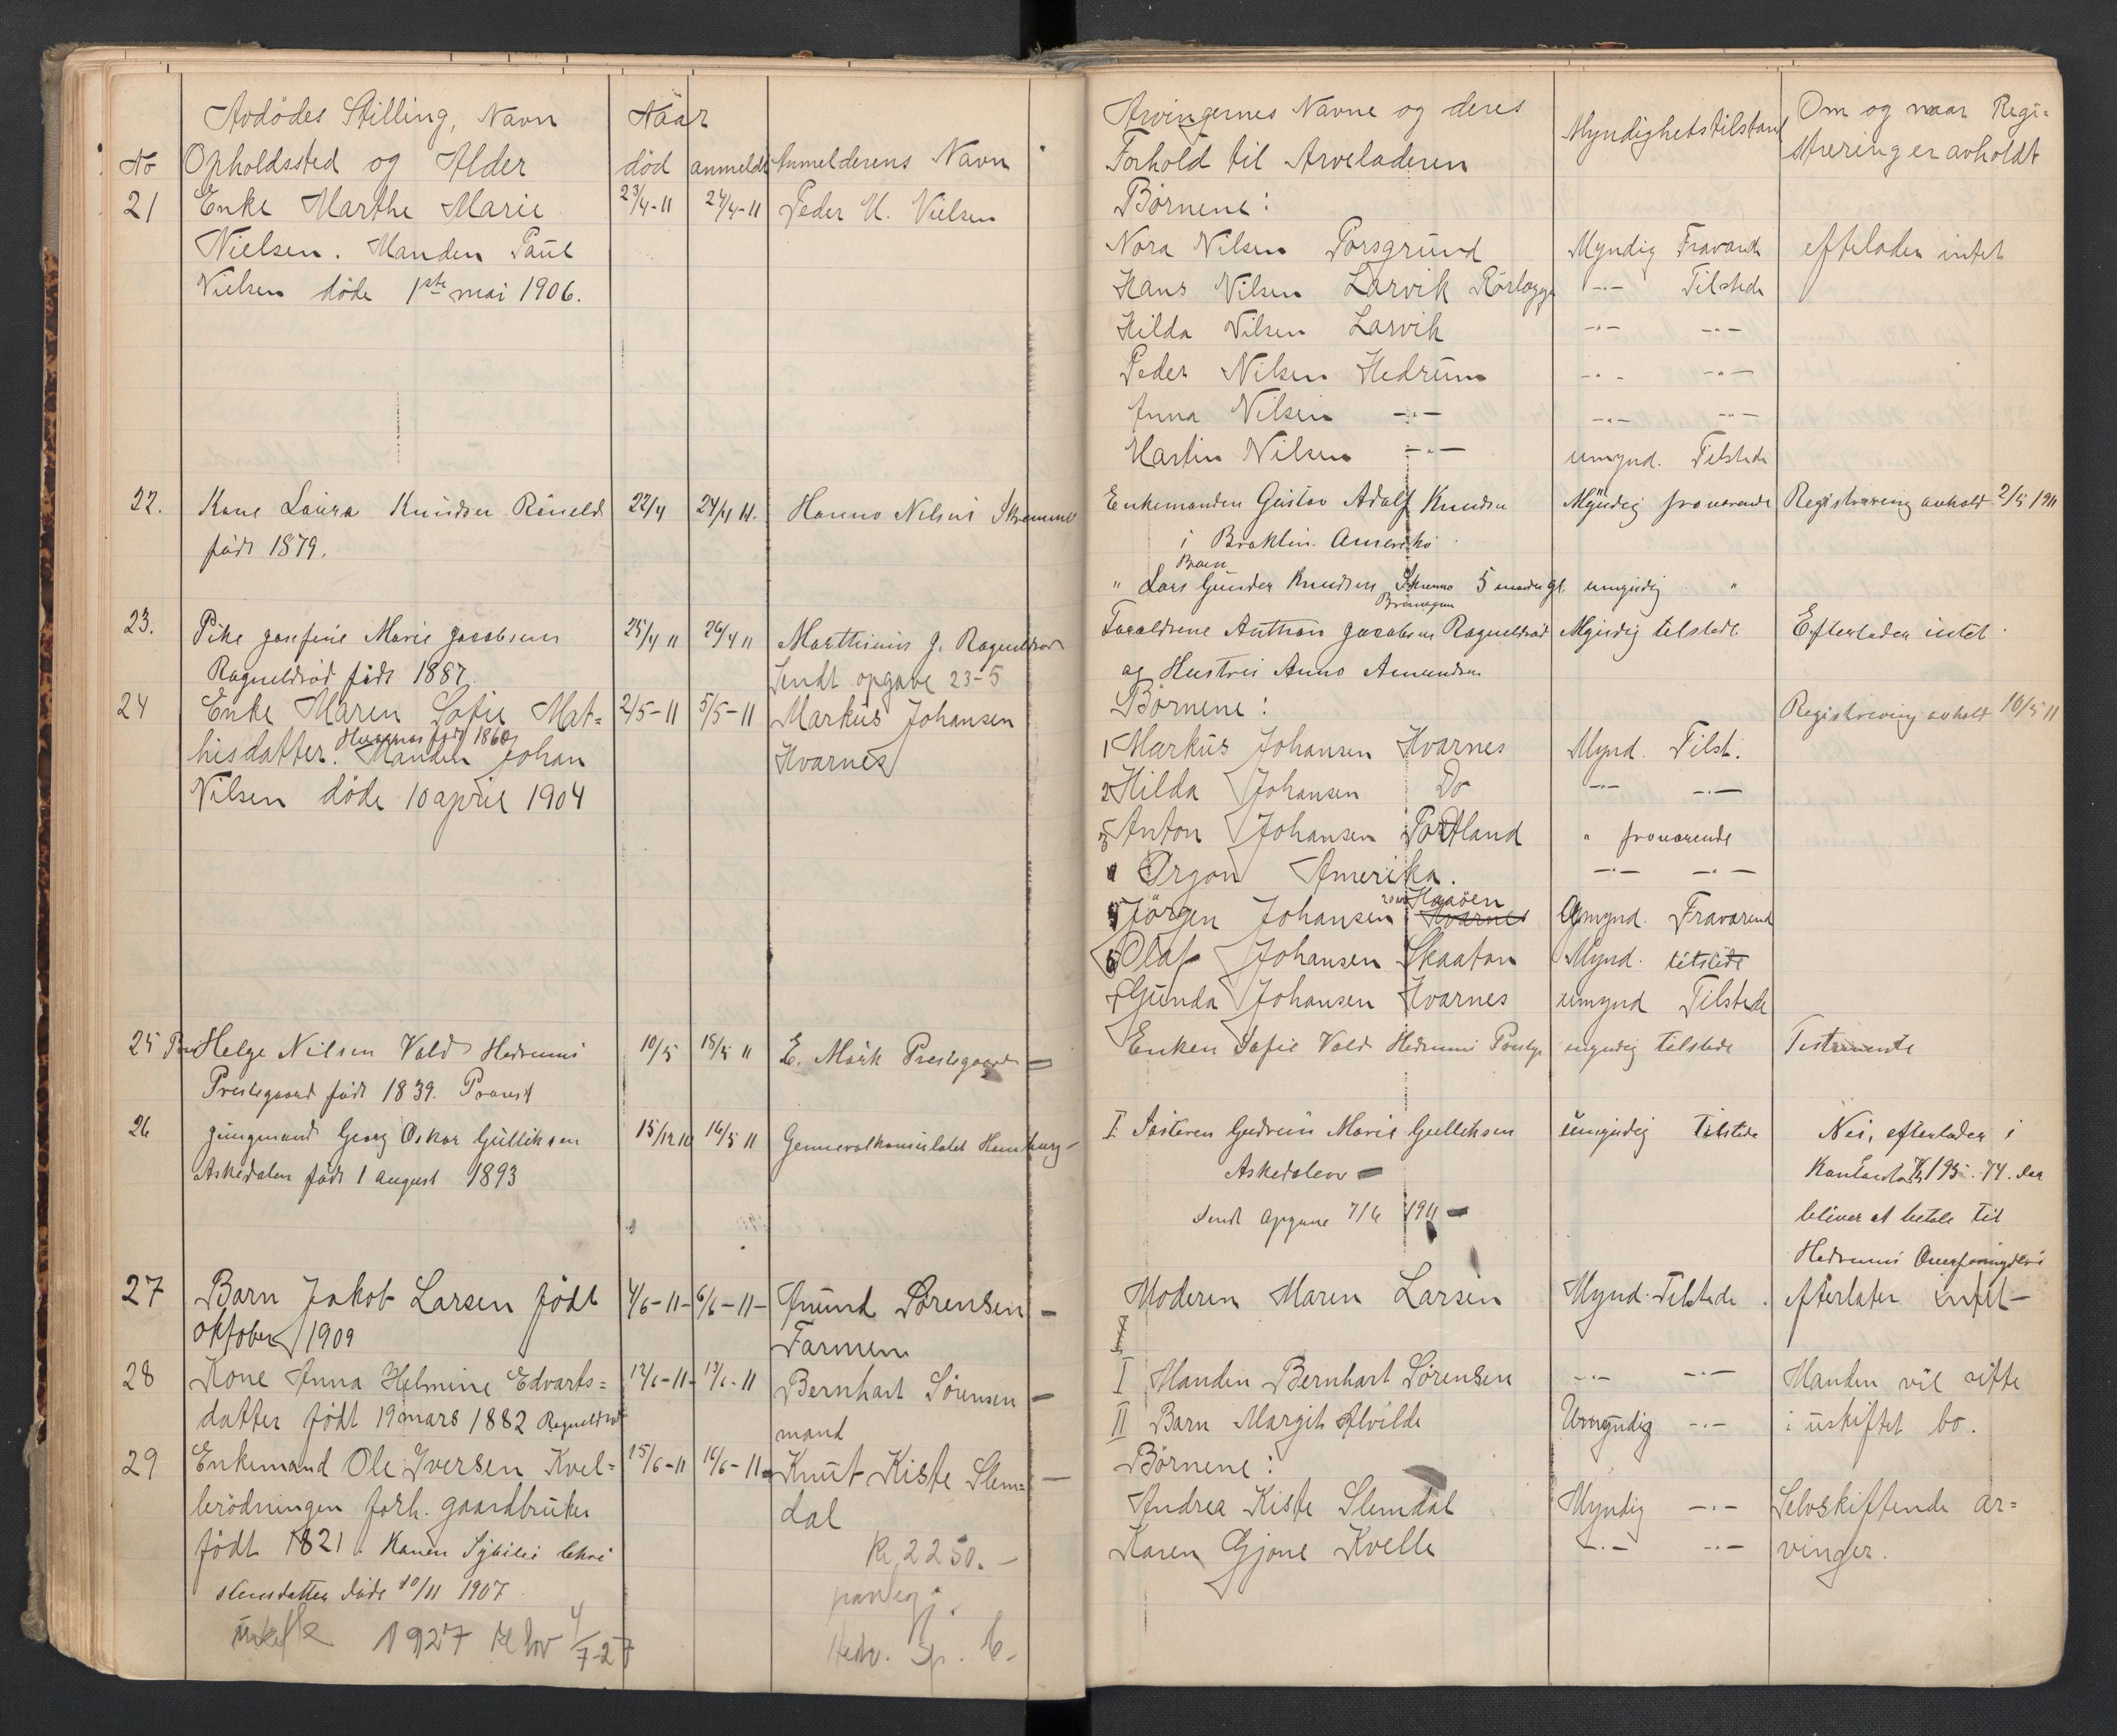 Avdödes Stilling, Navn
No Opholdssted og Alder
Naar
död anmeldt Anmelderens Navn
21 Enke Marthe Marie 23/4-11 24/4-11 Peder M. Nielsen
Nielsen. Manden Paul
Nielsen döde 1ste mai 1906.
22. Kone Laura Knudsen 22/4 24/4 11. Hanno Nilsen
född 1879.
23. Pike Josefine Marie Jacobsen 25/4 11 26/4 11 Marthinius J.
Ragneldröd född 1887. Sendt opgave 23-5
24 Enke Maren Sofie Mat= 2/5-11 5/5-11 Markus Johansen
Hvarnes född 1860
hisdatter. Manden Johan Hvarnes
Nilsen döde 10 april 1904
25 Helge Nilsen Vold Hedrum 10/5 15/5 11 E. Mörk Prestegaard
Prestegaard född 1839. Provst
26 Jungmand Georg Oskar Gulliksen 15/12 10 16/5 11 Generalkonsulatet Hamburg
Askedalen född 1 august 1893
27 Barn Jakob Larsen födt 4/6-11- 6/6-11- Amund Sörensen
oktober 1909 Farmen
28 Kone Anna Helmine Edvarts= 12/6-11- 13/6-11 Bernhart Sörensen
datter födt 19 mars 1882 Ragneldröd mand
29 Enkemand Ole Iversen Kvel= 15/6-11 16/6-11 Knut Kiste Slem=
leródningen forh. gaardbruker dal
födt 1821. Konen
döde 10/11 1907
Kr 2250.-
1927 4/7-27
Arvingernes Navne og deres
Forhold til Arveladeren
Myndighetstilstand
Om og naar Regi=
strering er avholdt
Börnene:
Nora Nilsen Porsgrund Myndig Fravarende efterlader intet
Hans Nilsen Larvik Rörlegger -"- Tilstede
Hilda Nilsen Larvik -"- -"-
Peder Nilsen Hedrum -"- -"-
Anna Nilsen -"- -"- -"-
Martin Nilsen -"- umynd. Tilstede
Enkemanden Gustav Adolf Knudsen Myndig fravarende Registrering avholdt 2/5 1911
i Broklin Amerika
Barn
" Lars Gunder Knudsen 5 maaneder gl. umyndig "
Forældrene Anthon Jacobsen Ragneldröd Myndig tilstede Efterlader intet
og Hustru Anna Amundsen
Börnene: Registrering avholt 10/5 11
1 Markus Johansen Hvarnes Mynd. Tilst.
2 Hilda Johansen Do -"- -"-
3 Anton Johansen Portland " fravarende
4 Orgon Amerika. -"- -"-
Haaöen
5 Jörgen Johansen Hvarnes Umynd. Fravarend
6 Olaf Johansen Skaatan Mynd. tilstede
7 Gunda Johansen Hvarnes umynd Tilstede
Enken Sofie Vold Hedrum myndig tilstede Testamente
I Sösteren Gudrun Marie Gulliksen umyndig Tilstede Nei, efterlader i
Askedalen Kontanter Kr 195.74. der
Sendt Opgave 7/6 1911 bliver at betale til
Hedrums Overformynderi
Moderen Maren Larsen Mynd. Tilstede. efterlater intet-
I Manden Bernhart Sörensen -"- -"- Manden vil sitte
II Barn Margit Alvilde Umyndig -"- i uskiftet bo.
Börnene:
Andrea Kiste Slemdal Myndig -"- Selvskiftende ar=
Karen Gjone Kvelle -"- -"- vinger.